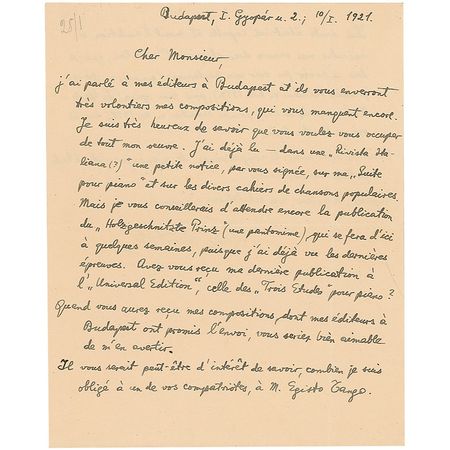 25/1
Budapest, I. Gyopár u. 2.; 10/I. 1921.
Cher Monsieur,
j'ai parlé à mes éditeurs à Budapest et ils vous enverront
très volontiers mes compositions, qui vous manquent encore.
Je suis très heureux de savoir que vous voulez vous occuper
de tout mon œuvre. J'ai déjà lu — dans une „Rivista Ita-
liana (?)" une petite notice, par vous signée, sur ma „Suite
pour piano" et sur les divers cahiers de chansons populaires.
Mais je vous conseillerais d'attendre encore la publication
du „Holzgeschnitzte Prinz" (une pantomime), qui se fera d'ici
à quelques semaines, puisque j'ai déjà vu les dernières
épreuves. Avez vous reçu ma dernière publication à
l'„Universal Edition", celle des „Trois Etudes" pour piano?
Quand vous aurez reçu mes compositions, dont mes éditeurs à
Budapest ont promis l'envoi, vous seriez bien aimable
de m'en avertir.
Il vous serait peut-être d'intérêt de savoir, combien je suis
obligé à un de vos compatriotes, à M. Egisto Tango.